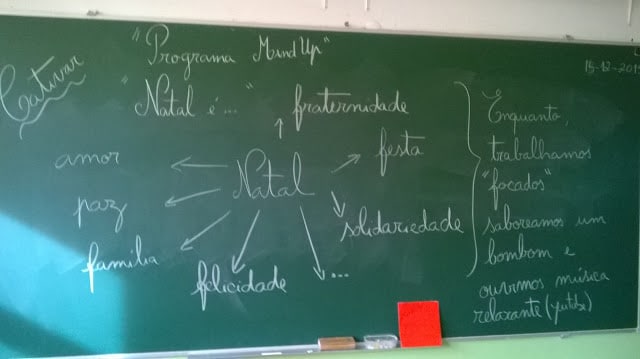 "Programa MindUp"
Cativar
15-12-201
"Natal é..."
fraternidade
amor
festa
Natal
paz
solidariedade
família
felicidade
...
Enquanto,
trabalhamos
"focados"
saboreamos um
bombom e
ouvimos música
relaxante (youtube)